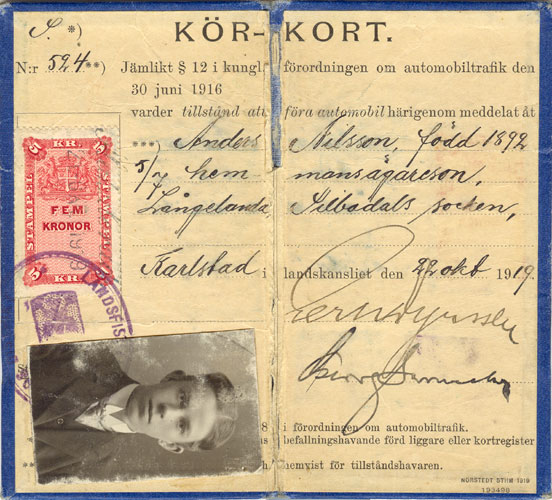 S. *)
KÖR-KORT.
N:r 524 **) Jämlikt § 12 i kungl. förordningen om automobiltrafik den
30 juni 1916
varder tillstånd att föra automobil härigenom meddelat åt
***) Anders Nilsson, född 1892
5/7 hemmansägareson,
Långelanda, Silbodals socken,
Karlstad i landskansliet den 22 okt 1919.
5 KR. 5
STÄMPEL
FEM
KRONOR
STÄMPEL
LANDSFIS
i förordningen om automobiltrafik.
befallningshavande förd liggare eller kortregister
hemvist för tillståndshavaren.
NORSTEDT STHM 1919
193498